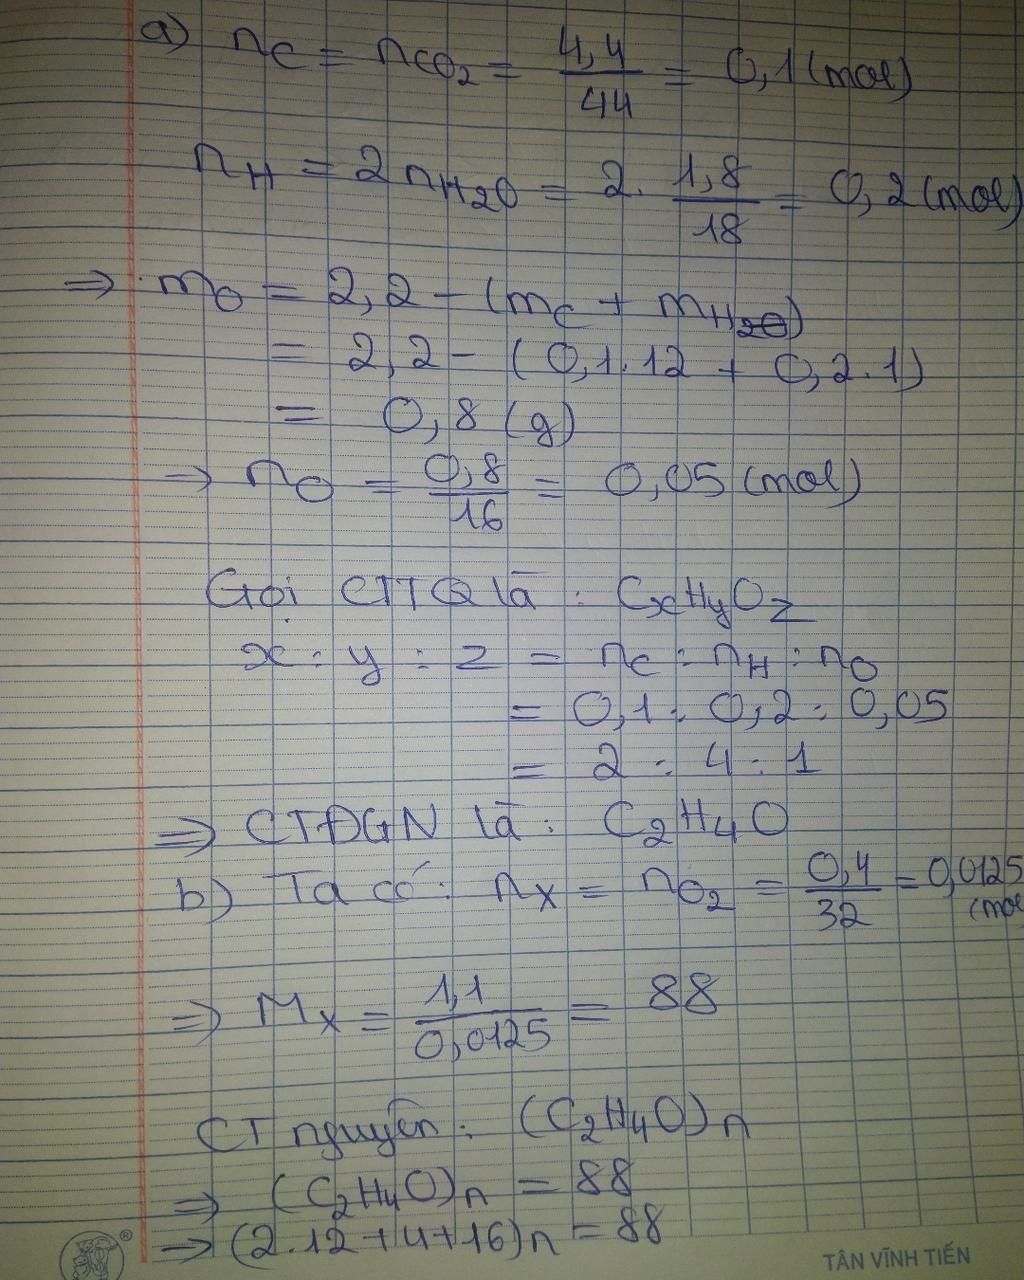 a) nC = nCO2 = 4,4/44 = 0,1 (mol)
nH = 2 nH2O = 2. 1,8/18 = 0,2 (mol)
=> mO = 2,2 - (mC + mH2O)
= 2,2 - (0,1.12 + 0,2.1)
= 0,8 (g)
→ nO = 0,8/16 = 0,05 (mol)
Gọi CTTQ là : CxHyOz
x : y : z = nC : nH : nO
= 0,1 : 0,2 : 0,05
= 2 : 4 : 1
=> CTĐGN là : C2H4O
b) Ta có : nX = nO2 = 0,4/32 = 0,0125 (mol
=> MX = 1,1/0,0125 = 88
CT nguyên : (C2H4O)n
=> (C2H4O)n = 88
=> (2.12+4+16)n = 88
®
TÂN VĨNH TIẾN